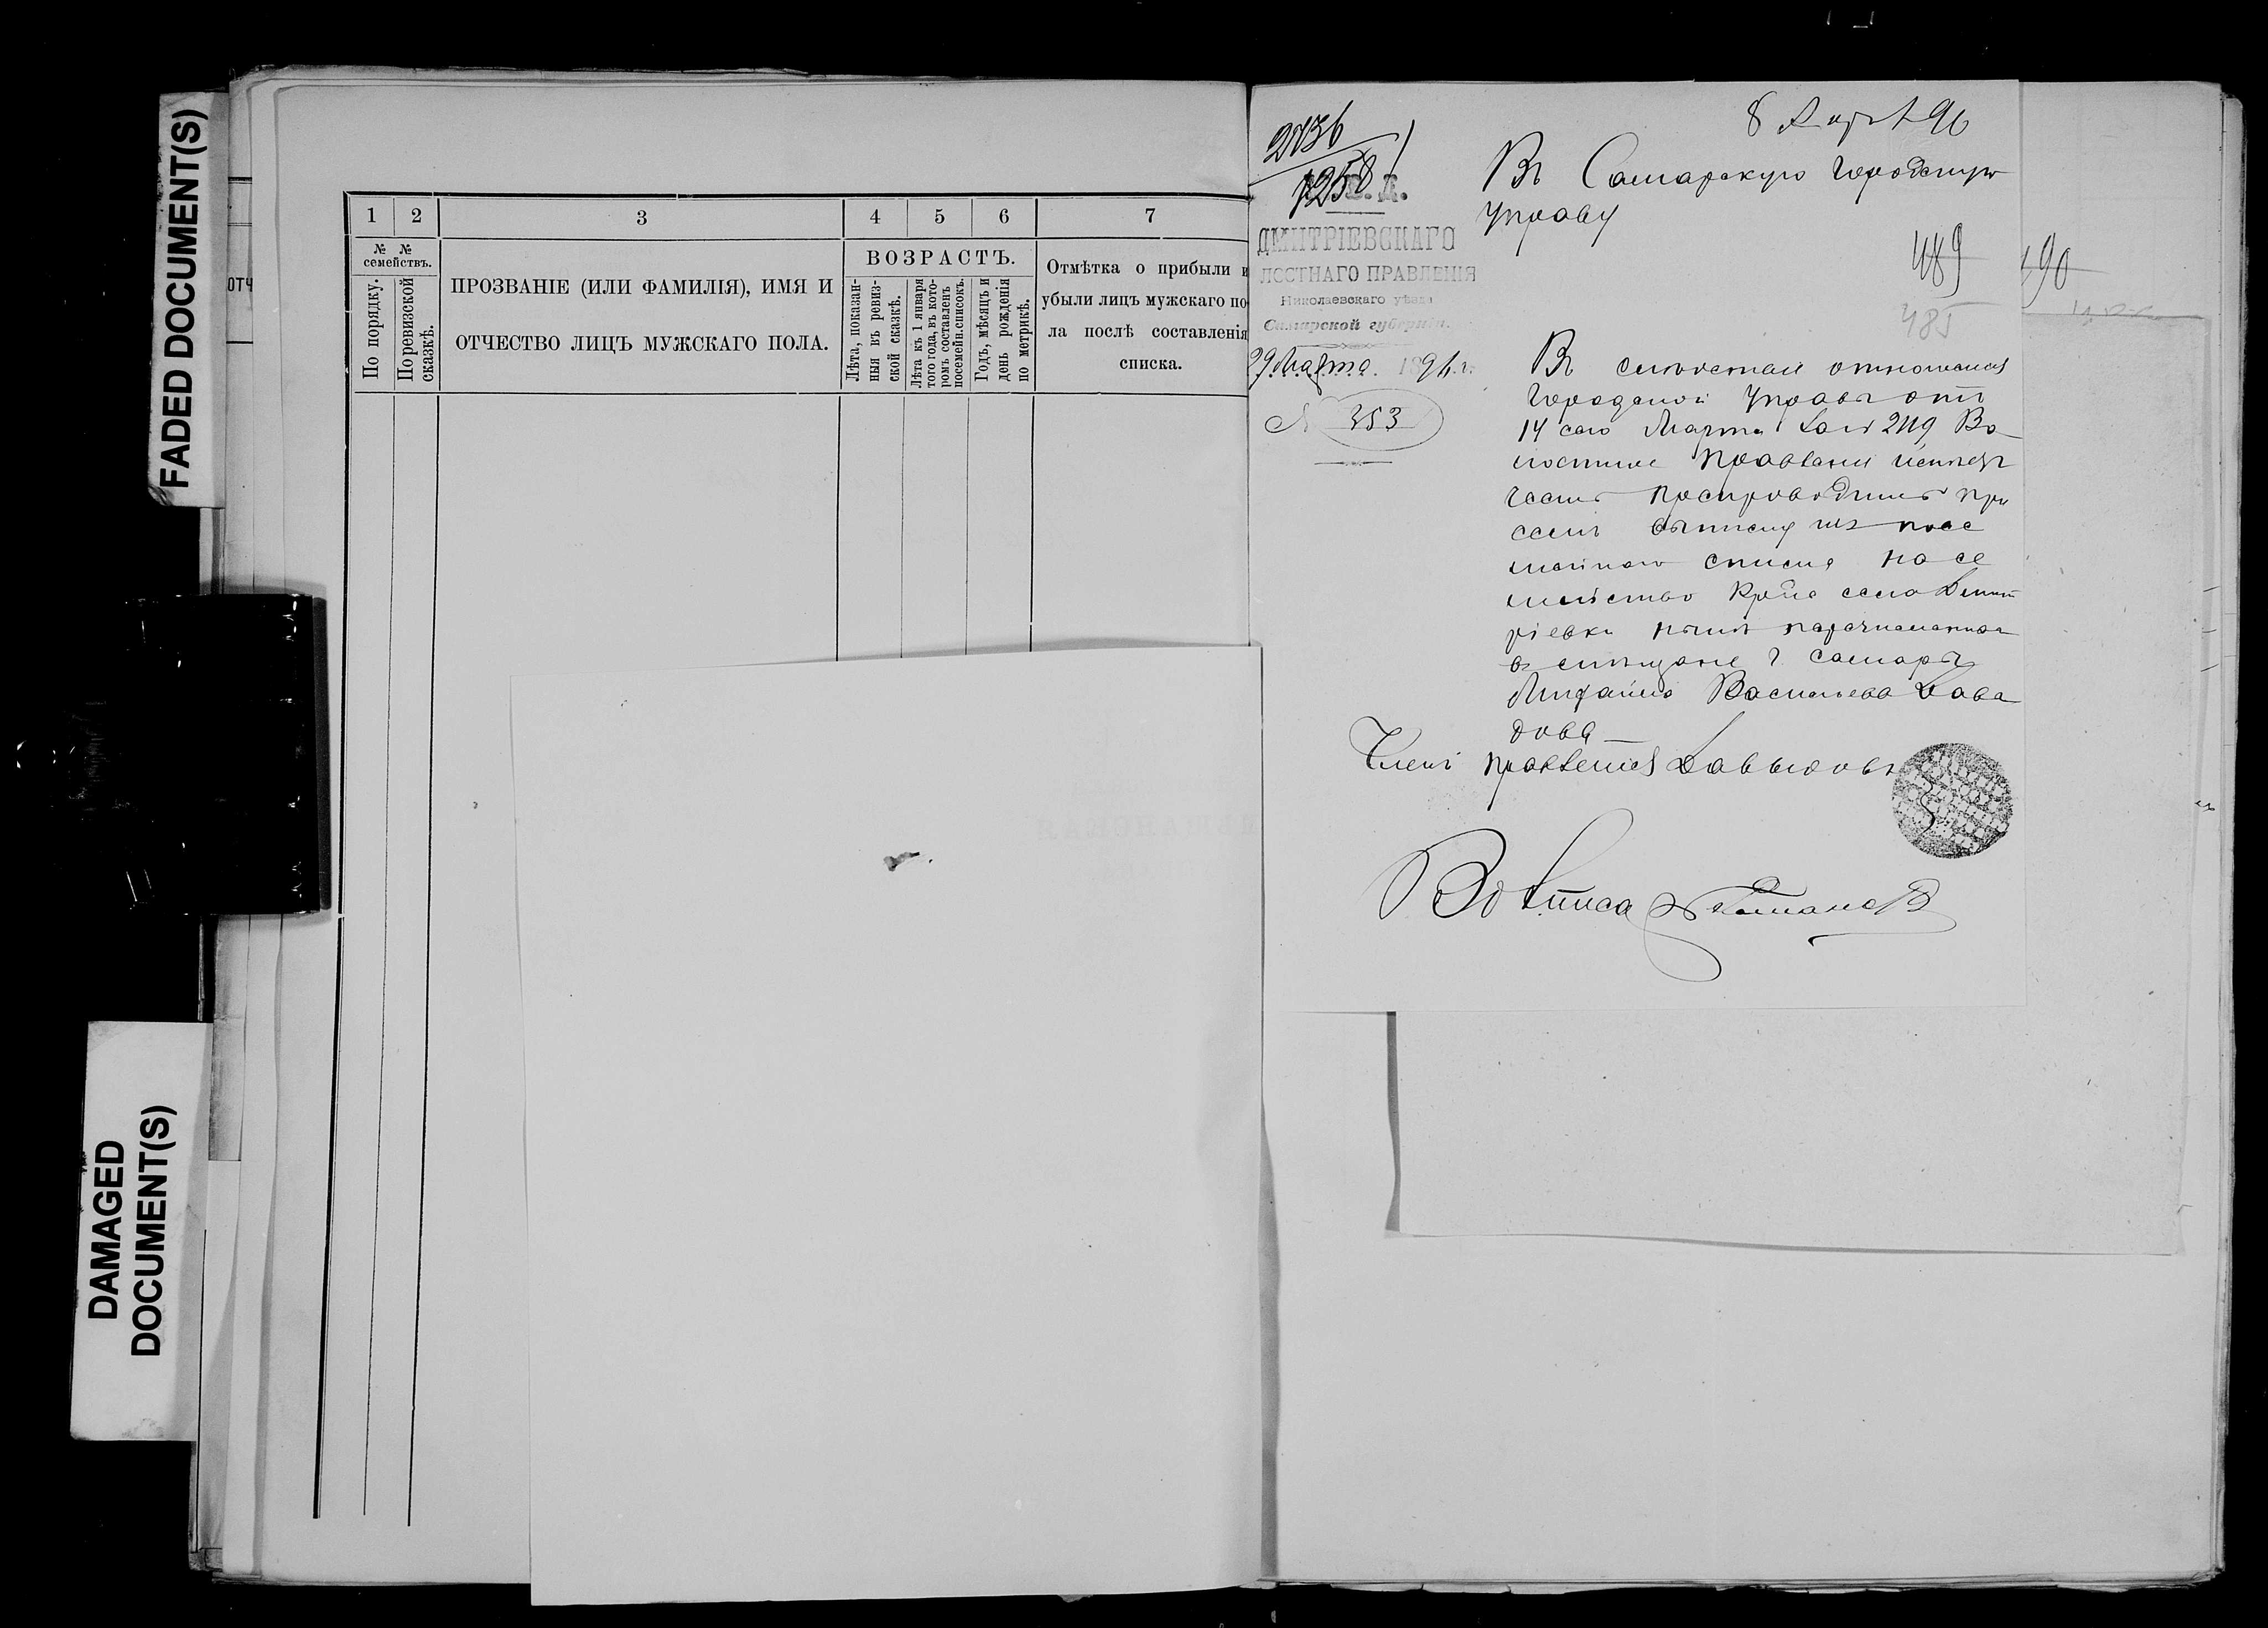 FADED DOCUMENT(S)
DAMAGED
DOCUMENT(S)
ОТЧ
1 2 3 4 5 6 7
№ №
семействъ.
По порядку.
По ревизской
сказкѣ.
ПРОЗВАНІЕ (ИЛИ ФАМИЛІЯ), ИМЯ И
ОТЧЕСТВО ЛИЦЪ МУЖСКАГО ПОЛА.
ВОЗРАСТЪ.
Лѣта, показан-
ныя въ ревиз-
ской сказкѣ.
Лѣта къ 1 января
того года, въ кото-
ромъ составленъ
посемейн. списокъ.
Годъ, мѣсяцъ и
день рожденія
по метрикѣ.
Отмѣтка о прибыли и
убыли лицъ мужскаго по-
ла послѣ составленія
списка.
8 Апр 96
2736
1258
Въ Самарскую Городскую
Управу
ДМИТРІЕВСКАГО
ЛОСТНАГО ПРАВЛЕНІЯ
Николаевскаго уѣзда
Самарской губерніи.
29 Марта 1896 г.
№ 353
489
490
485
Въ отношенія
Городской Управы отъ
14 сего Марта за № 2119 Во
лостное Правленіе
препроводить при
семъ выписку изъ посе
мейнаго списка на се
мейство Кр-на села Дмит
ріевки нынѣ перечисленнаго
въ мѣщане г. Самары
Михаила Васильева Давы
дова
Членъ правленія Давыдовъ